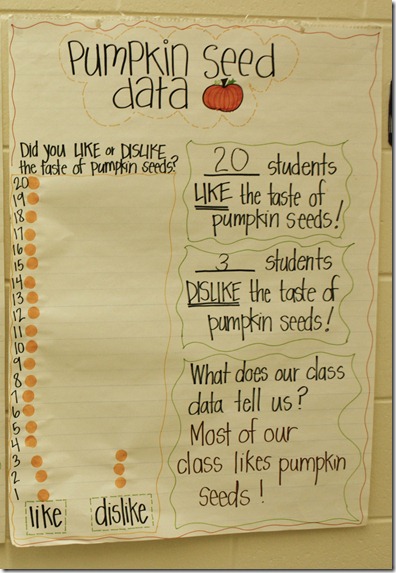 Pumpkin Seed
data
Did you LIKE or DISLIKE
the taste of pumpkin seeds?
20
19
18
17
16
15
14
13
12
11
10
9
8
7
6
5
4
3
2
1
like
dislike
20 students
LIKE the taste of
pumpkin seeds!
3 students
DISLIKE the taste of
pumpkin seeds!
What does our class
data tell us?
Most of our
class likes pumpkin
seeds!